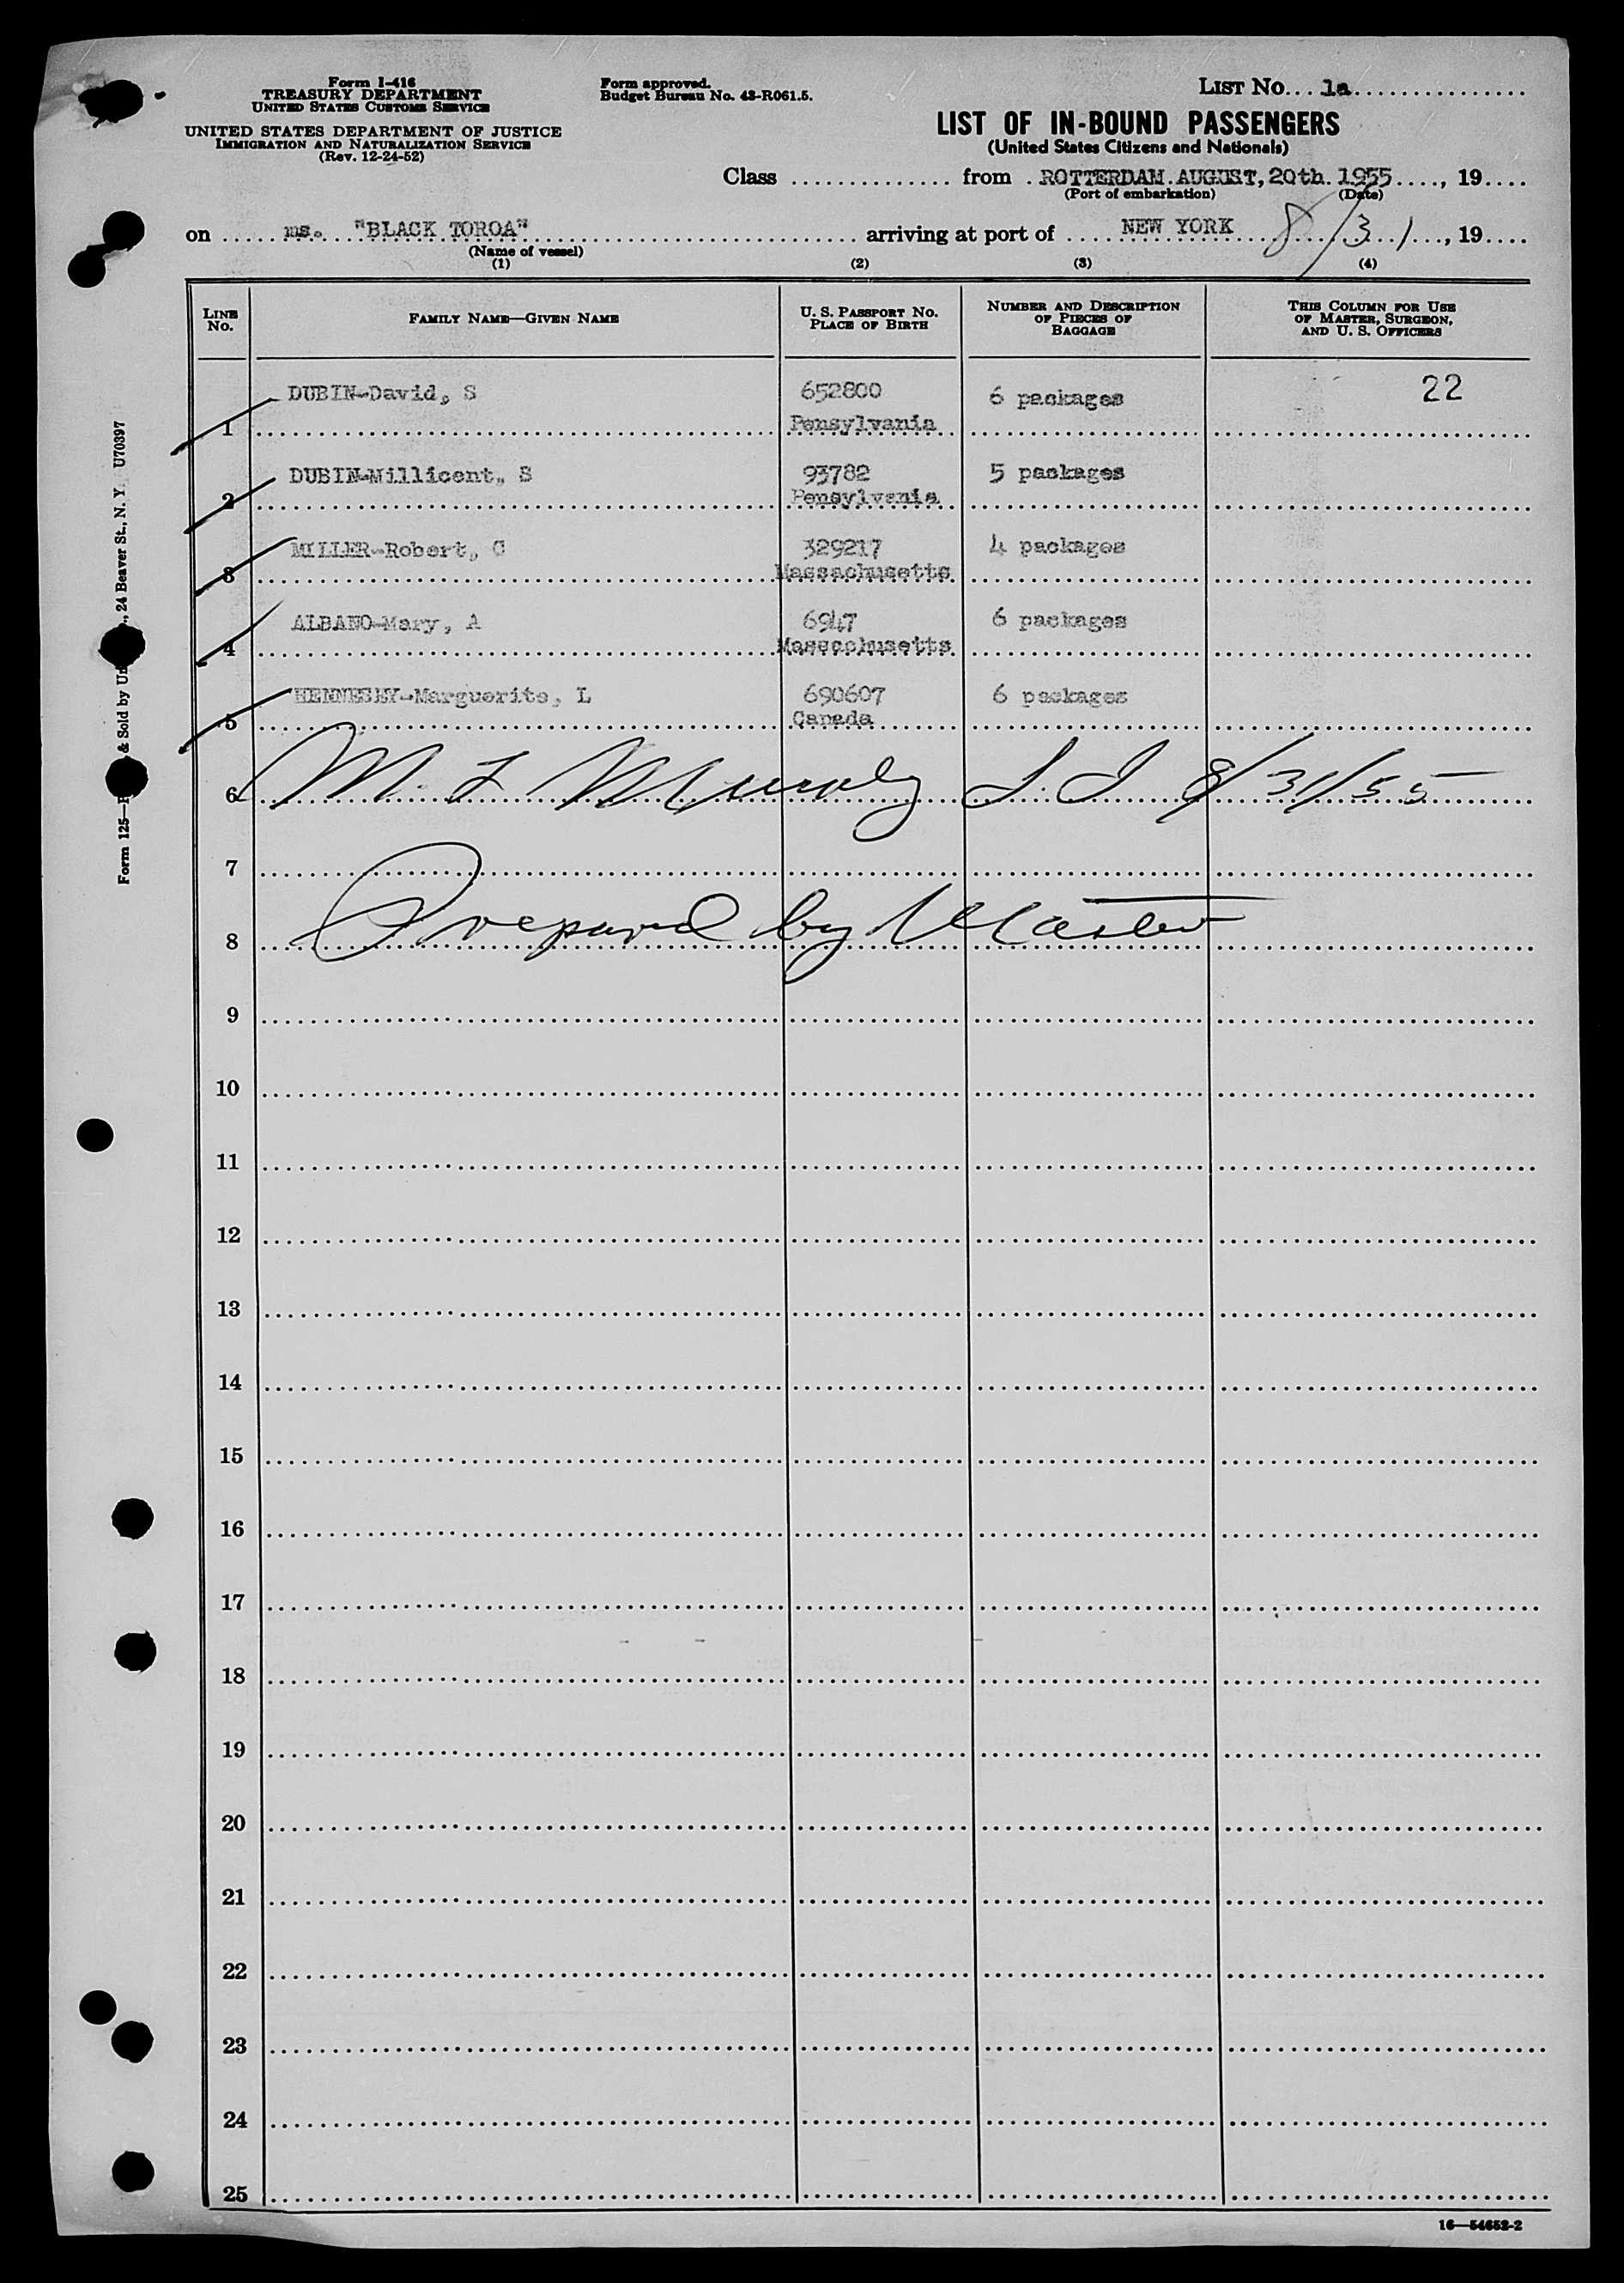 Form I-416
TREASURY DEPARTMENT
UNITED STATES CUSTOMS SERVICE
UNITED STATES DEPARTMENT OF JUSTICE
IMMIGRATION AND NATURALIZATION SERVICE
(Rev. 12-24-52)
Form approved.
Budget Bureau No. 43-R061.5.
LIST No. 1a
LIST OF IN-BOUND PASSENGERS
(United States Citizens and Nationals)
Class from ROTTERDAM AUGUST, 20th 1955, 19
(Port of embarkation) (Date)
on ms. "BLACK TOROA" arriving at port of NEW YORK 8/31, 19
(Name of vessel)
(1) (2) (3) (4)
LINE No. FAMILY NAME—GIVEN NAME U. S. PASSPORT No. PLACE OF BIRTH NUMBER AND DESCRIPTION OF PIECES OF BAGGAGE THIS COLUMN FOR USE OF MASTER, SURGEON, AND U. S. OFFICERS
1 DUBIN-David, S 652800 6 packages 22
Pensylvania
2 DUBIN-Millicent, S 93782 5 packages
Pensylvania
3 MILLER-Robert, C 329217 4 packages
Massachusetts
4 ALBANO-Mary, A 6947 6 packages
Massachusetts
5 HENNESEY-Marguerite, L 690607 6 packages
Canada
6 M. L 8/31/55
7
8 Prepared by Master
9
10
11
12
13
14
15
16
17
18
19
20
21
22
23
24
25
16—54652-2
Form 125— & Sold by , 24 Beaver St., N. Y. U70397